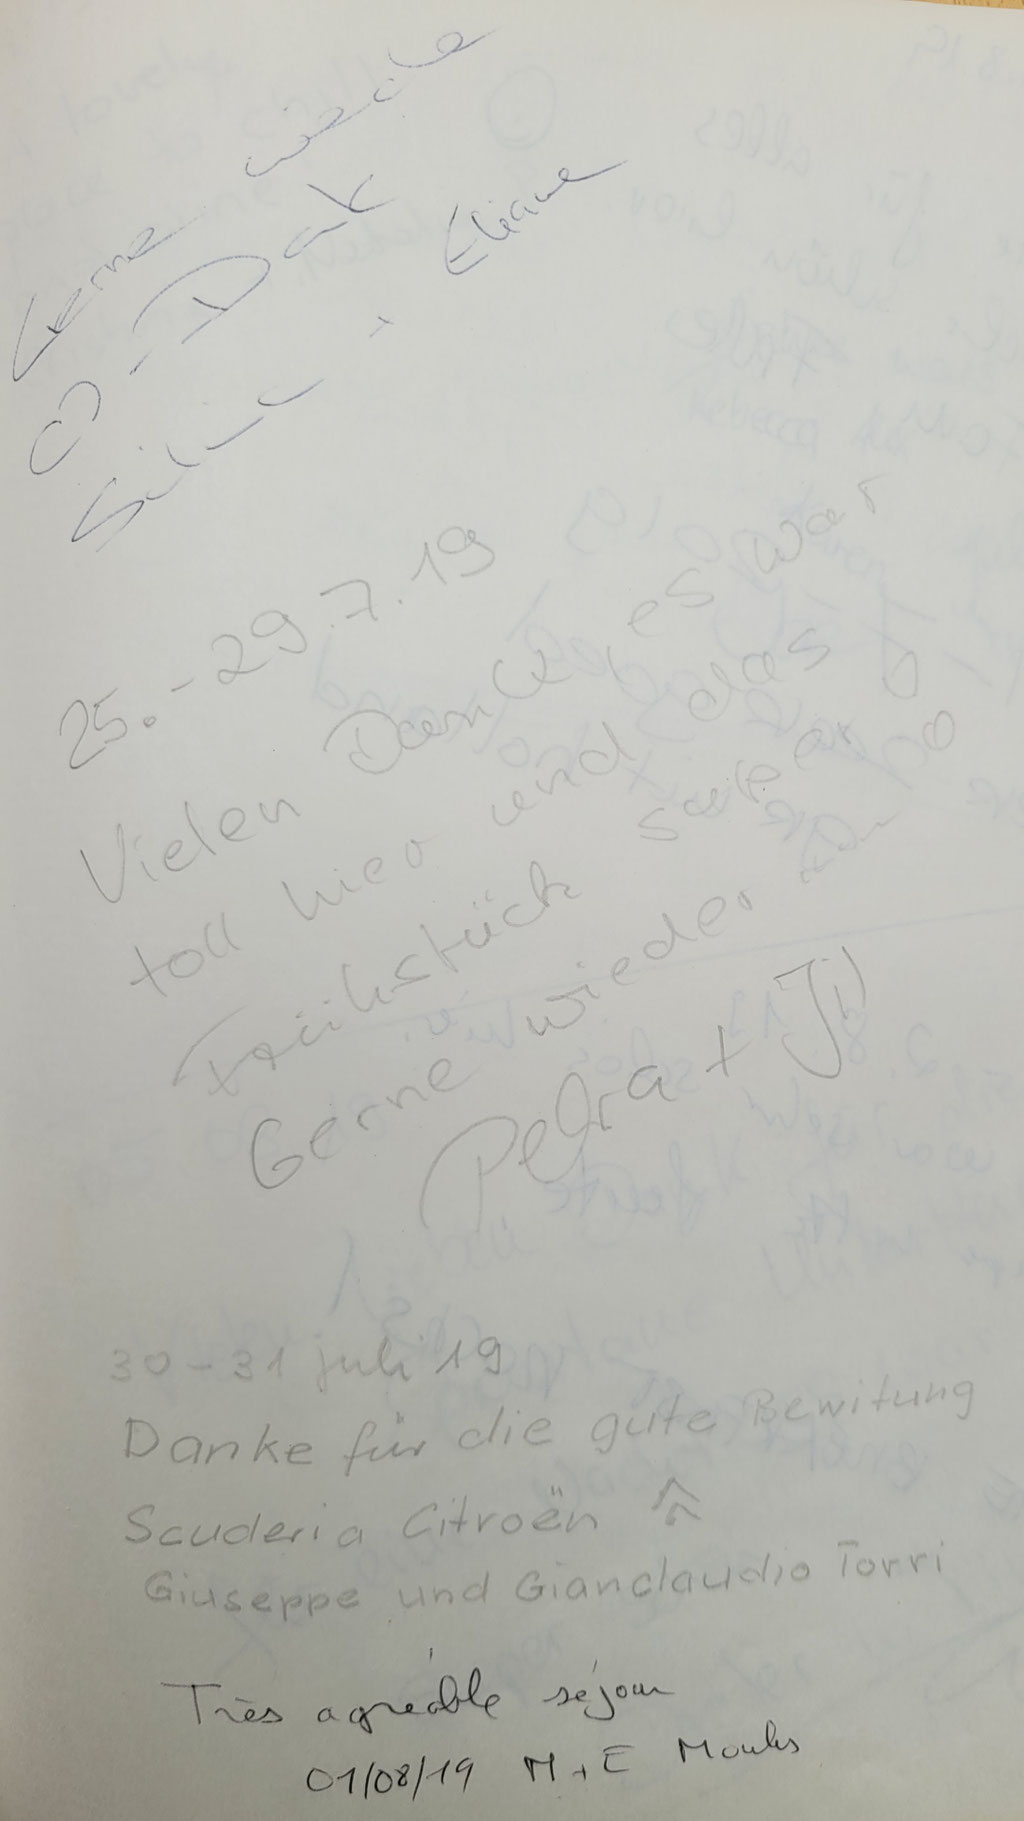 Gerne wiede
Dank
Silvia + Eliane
25.-29.7.19
Vielen Dank es war
toll hier und das
Frühstück super
Gerne wieder
Petra +
30-31 juli 19
Danke für die gute Bewitung
Scuderia Citroën
Giuseppe und Gianclaudio Torri
Très agréable séjour
01/08/19 M + E